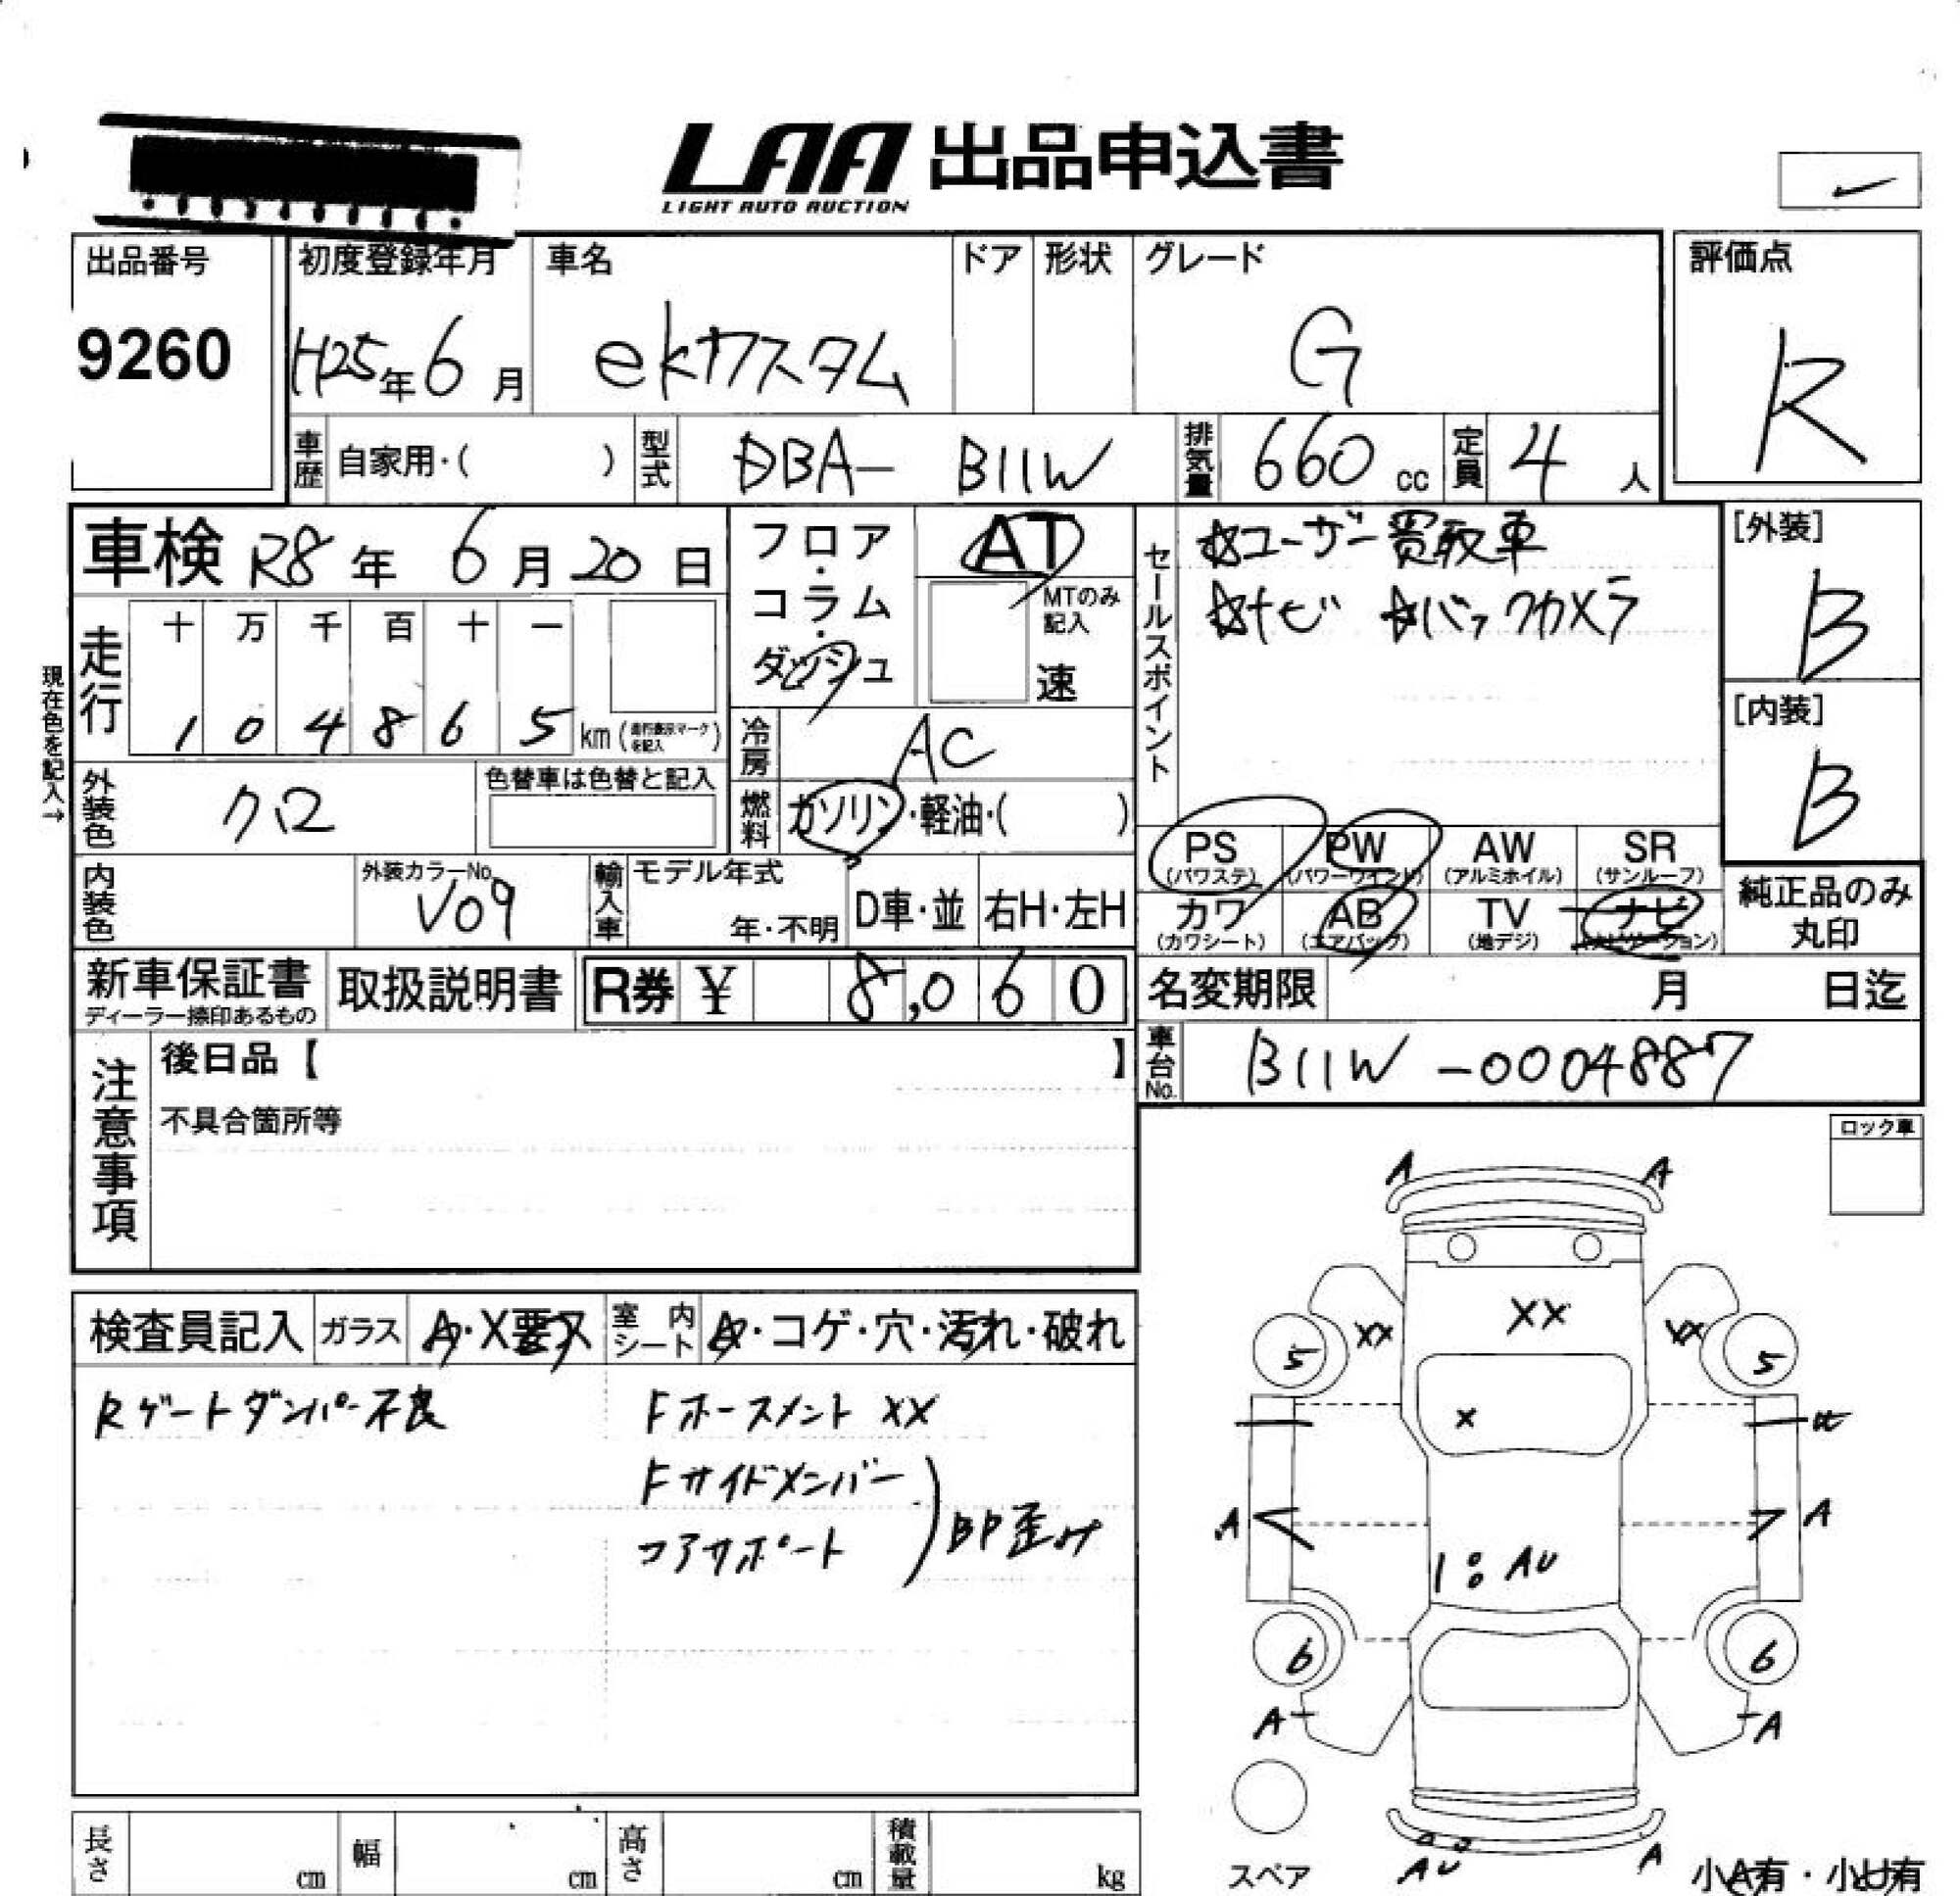 LAA 出品申込書
LIGHT AUTO AUCTION
出品番号
9260
初度登録年月
H25年6月
車名
ekカスタム
ドア
形状
グレード
G
評価点
R
車歴
自家用・( )
型式
DBA- B11W
排気量
660 cc
定員
4人
車検 R8年 6月20日
現在色を記入→
走行
十 万 千 百 十 一
1 0 4 8 6 5 km
フロア・コラム・ダッシュ
AT
MTのみ記入
速
冷房
AC
燃料
ガソリン・軽油・( )
外装色
クロ
色替車は色替と記入
内装色
外装カラーNo.
V09
輸入車
モデル年式
年・不明
D車・並
右H・左H
セールスポイント
☆ユーザー買取車
☆ナビ ☆バックカメラ
[外装]
B
[内装]
B
PS (パワステ)
PW (パワーウインド)
AW (アルミホイル)
SR (サンルーフ)
カワ (カワシート)
AB (エアバック)
TV (地デジ)
ナビ (ナビゲーション)
純正品のみ丸印
新車保証書
ディーラー捺印あるもの
取扱説明書
R券 ¥ 8,060
名変期限 月 日迄
車台No.
B11W-0004887
注意事項
後日品【 】
不具合箇所等
ロック車
検査員記入
ガラス
A・X要ス
室内シート
A・コゲ・穴・汚れ・破れ
Rゲートダンパー不良
Fホースメント XX
Fサイドメンバー
コアサポート
BP歪み
A A
XX XX XX
5 5
X
A A
1:AU
6 6
A A
AU A
スペア
小A有・小U有
長さ cm
幅 cm
高さ cm
積載量 kg